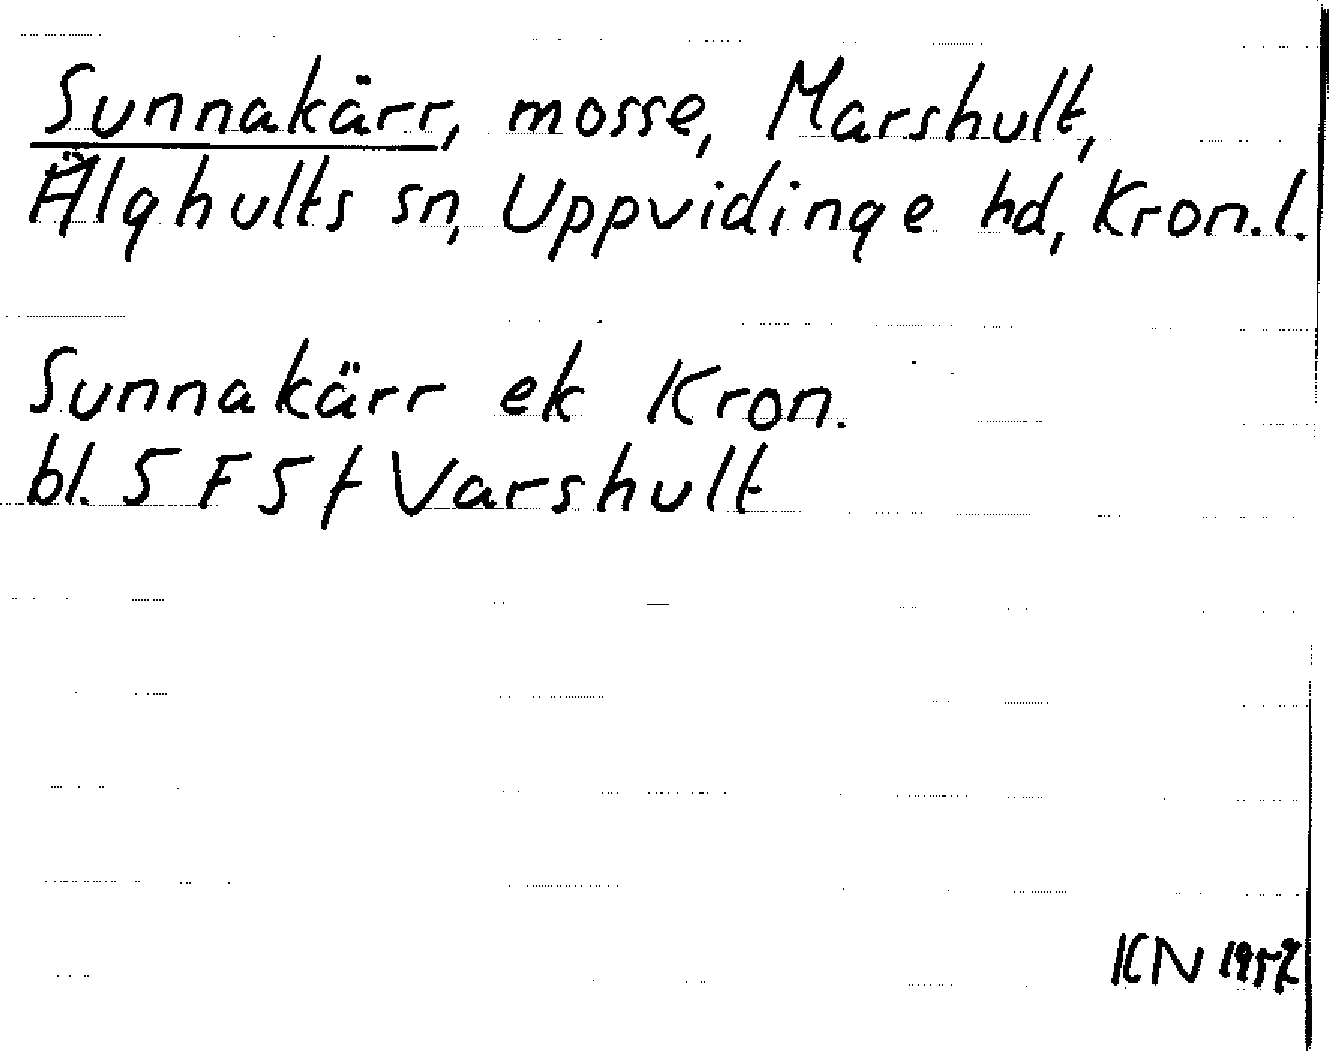 Sunnakärr, mosse, Marshult,
Älghults sn, Uppvidinge hd, Kron.l.
Sunnakärr ek Kron.
bl. 5 F 5 f Varshult
KN 1957